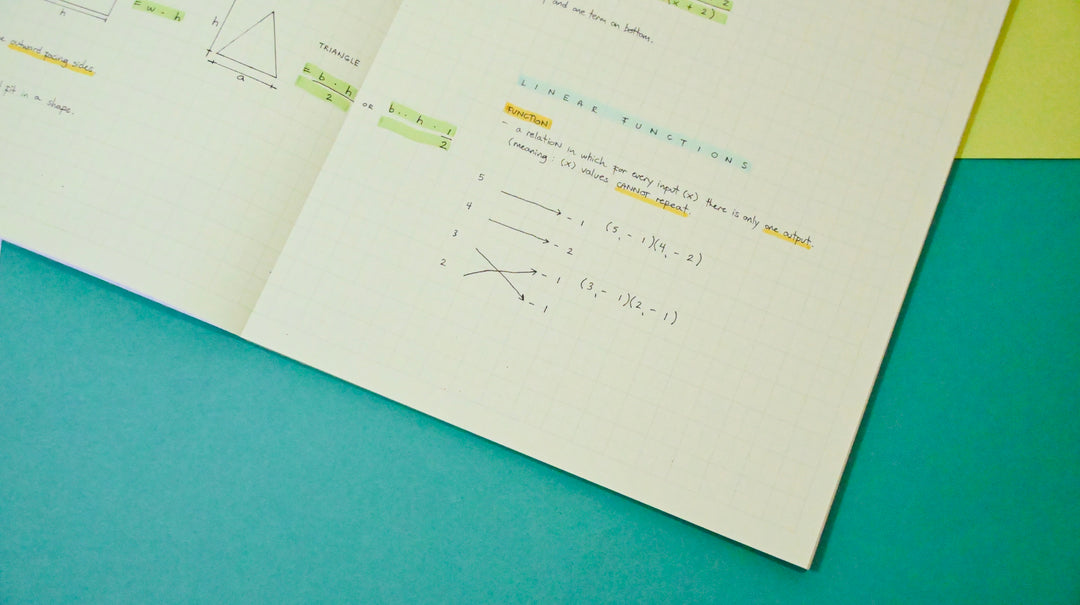 h
= w · h
outward facing sides
fit in a shape.
h
a
TRIANGLE
= b · h
2
OR
b · h · 1
2
2
(x + 2)
and one term on bottom.
LINEAR FUNCTIONS
FUNCTION
- a relation in which for every input (x) there is only one output.
(meaning: (x) values CANNOT repeat.
5
4
3
2
- 1
- 2
- 1
- 1
(5, - 1)(4, - 2)
(3, - 1)(2, - 1)